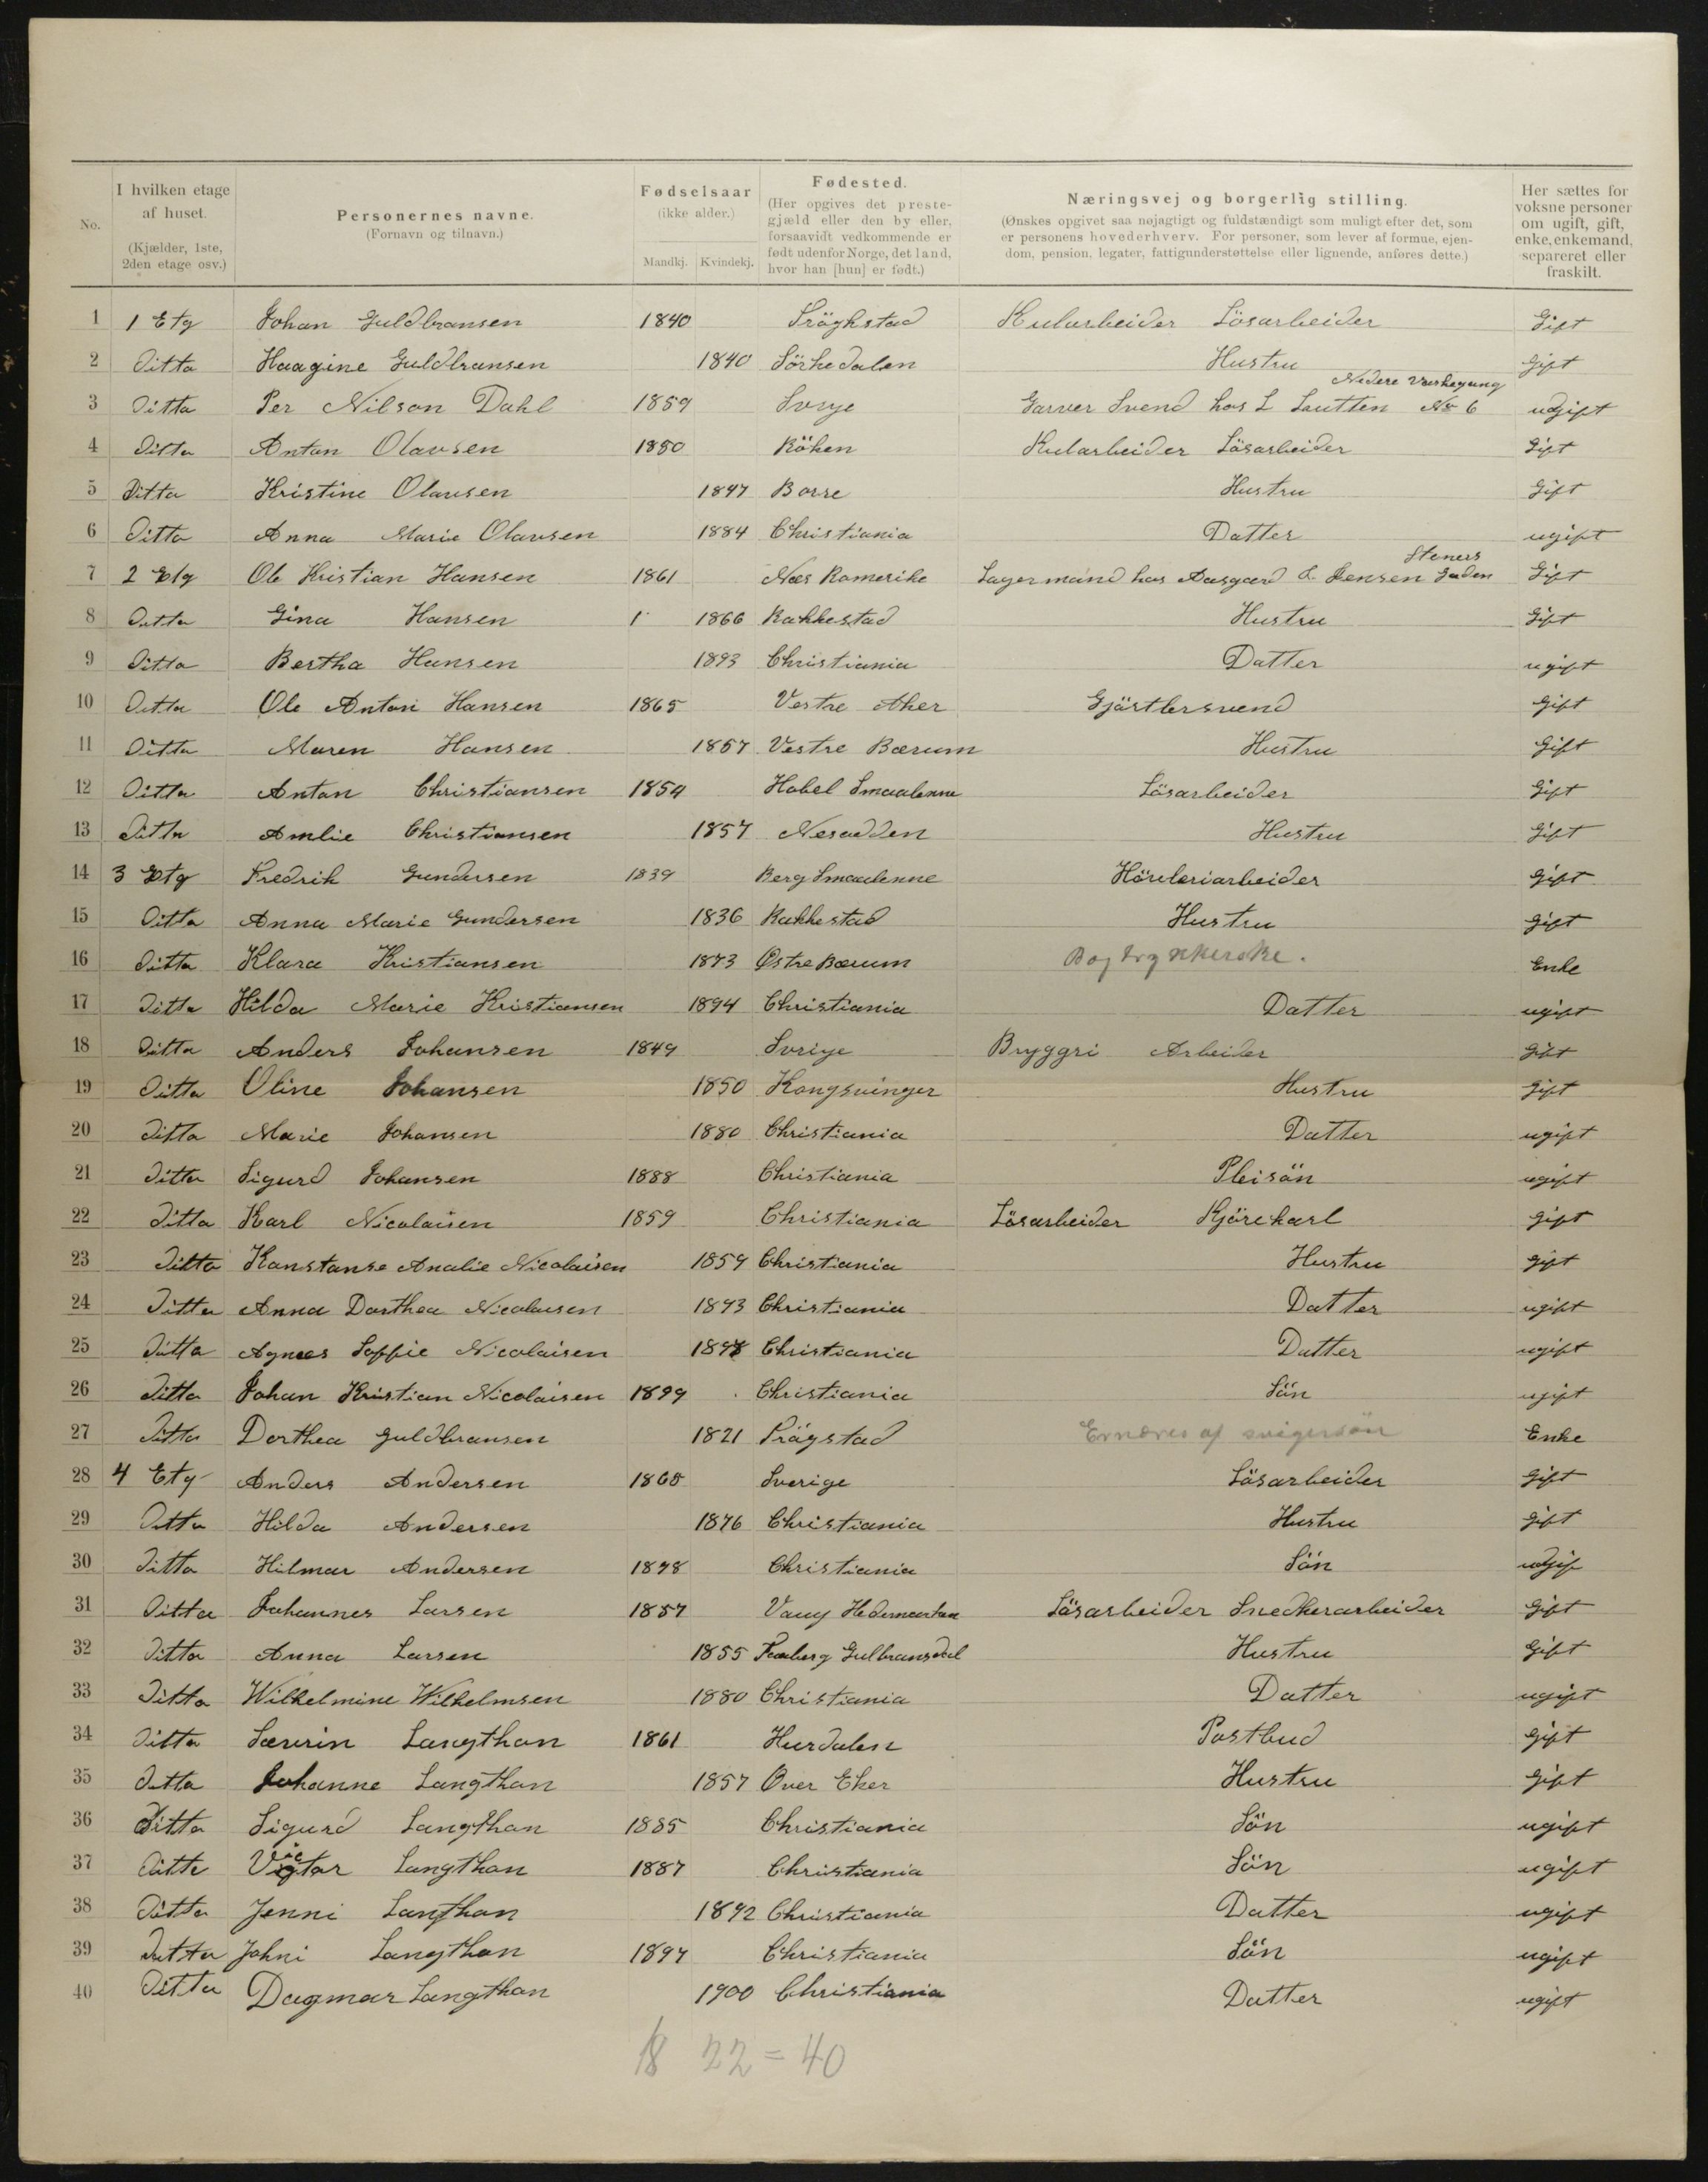 No.
I hvilken etage af huset. (Kjælder, 1ste, 2den etage osv.)
Personernes navne. (Fornavn og tilnavn.)
Fødselsaar (ikke alder.) Mandkj. Kvindekj.
Fødested. (Her opgives det prestegjæld eller den by eller, forsaavidt vedkommende er født udenfor Norge, det land, hvor han [hun] er født.)
Næringsvej og borgerlig stilling. (Ønskes opgivet saa nøjagtigt og fuldstændigt som muligt efter det, som er personens hovederhverv. For personer, som lever af formue, ejendom, pension, legater, fattigunderstøttelse eller lignende, anføres dette.)
Her sættes for voksne personer om ugift, gift, enke, enkemand, separeret eller fraskilt.
1 1 Etg Johan Guldbransen 1840 Frøghstad Kularbeider Lösarbeider Gift
2 Ditto Haagine Guldbransen 1840 Sörkedalen Hustru Gift
3 Ditto Per Nilson Dahl 1859 Svrye Garver Svend hos L Nedere No 6 udgift
4 Ditto Anton Olavsen 1850 Röken Kularbeider Lösarbeider Gift
5 Ditto Kristine Olausen 1847 Borre Hustru Gift
6 Ditto Anna Marie Olausen 1884 Christiania Datter ugift
7 2 Etg Ole Kristian Hansen 1861 Næs Romerike Lagermand hos Aasgard & Jensen Steners Gaden Gift
8 Ditto Gina Hansen 1866 Rakkestad Hustru Gift
9 Ditto Bertha Hansen 1893 Christiania Datter ugift
10 Ditto Ole Anton Hansen 1865 Vestre Aker Gjörtlersvend Gift
11 Ditto Maren Hansen 1857 Vestre Bærum Hustru Gift
12 Ditto Anton Christiansen 1854 Hobel Smaalenne Lösarbeider Gift
13 Ditto Amlie Christiansen 1857 Nesodden Hustru Gift
14 3 Etg Fredrik Gundersen 1839 Berg Smaalenne Höveleriarbeider Gift
15 Ditto Anna Marie Gundersen 1836 Rakkestad Hustru Gift
16 Ditto Klara Kristiansen 1873 Østre Bærum Bogtrykkerske. Enke
17 Ditto Hilda Marie Kristiansen 1894 Christiania Datter ugift
18 Ditto Anders Johansen 1849 Sverige Bryggri Arbeider Gift
19 Ditto Oline Johansen 1850 Kongsvinger Hustru Gift
20 Ditto Marie Johansen 1880 Christiania Datter ugift
21 Ditto Sigurd Johansen 1888 Christiania Pleisön ugift
22 Ditto Karl Nicolaisen 1859 Christiania Lösarbeider Kjörekarl gift
23 Ditto Konstanse Amalie Nicolaisen 1859 Christiania Hustru gift
24 Ditto Anna Dorthea Nicolaisen 1893 Christiania Datter ugift
25 Ditto Agnes Soffie Nicolaisen 1898 Christiania Datter ugift
26 Ditto Johan Kristian Nicolaisen 1899 Christiania Sön ugift
27 Ditto Dorthea Guldbransen 1821 Frögstad Ernæres af svigersön Enke
28 4 Etg Anders Andersen 1868 Sverige Lösarbeider Gift
29 Ditto Hilda Andersen 1876 Christiania Hustru Gift
30 Ditto Hilmar Andersen 1898 Christiania Sön udgif
31 Ditto Johannes Larsen 1857 Vang Hedemarken Lösarbeider Snedkerarbeider Gift
32 Ditto Anna Larsen 1855 Faaberg Gulbransdal Hustru Gift
33 Ditto Wilhelmine Wilhelmsen 1880 Christiania Datter ugift
34 Ditto Særrin Langthon 1861 Hurdalen Postbud gift
35 Ditto Johanne Langthon 1857 Over Eker Hustru Gift
36 Ditto Sigurd Langthon 1885 Christiania Sön ugift
37 Ditto Victor Langthon 1887 Christiania Sön ugift
38 Ditto Jenni Langthon 1892 Christiania Datter ugift
39 Ditto Johni Langthon 1897 Christiania Sön ugift
40 Ditto Dagmar Langthon 1900 Christiania Datter ugift
18 22 = 40